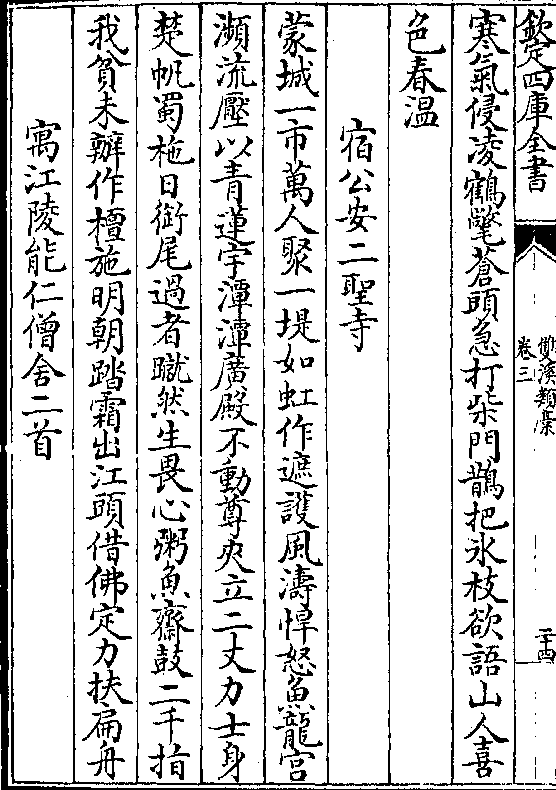 欽定四庫全書
雙溪類稾
卷三
二十四
寒氣侵凌鶴氅蒼頭急打柴門鵲把氷枝欲語山人喜
色春温
宿公安二聖寺
蒙城一市萬人聚一堤如虹作遮護風濤悍怒魚龍宫
瀕流壓以青蓮宇潭潭廣殿不動尊夾立二丈力士身
楚帆蜀柂日銜尾過者蹴然生畏心粥魚齋鼓二千指
我貧未辦作檀施明朝踏霜出江頭借佛定力扶扁舟
寓江陵能仁僧舍二首